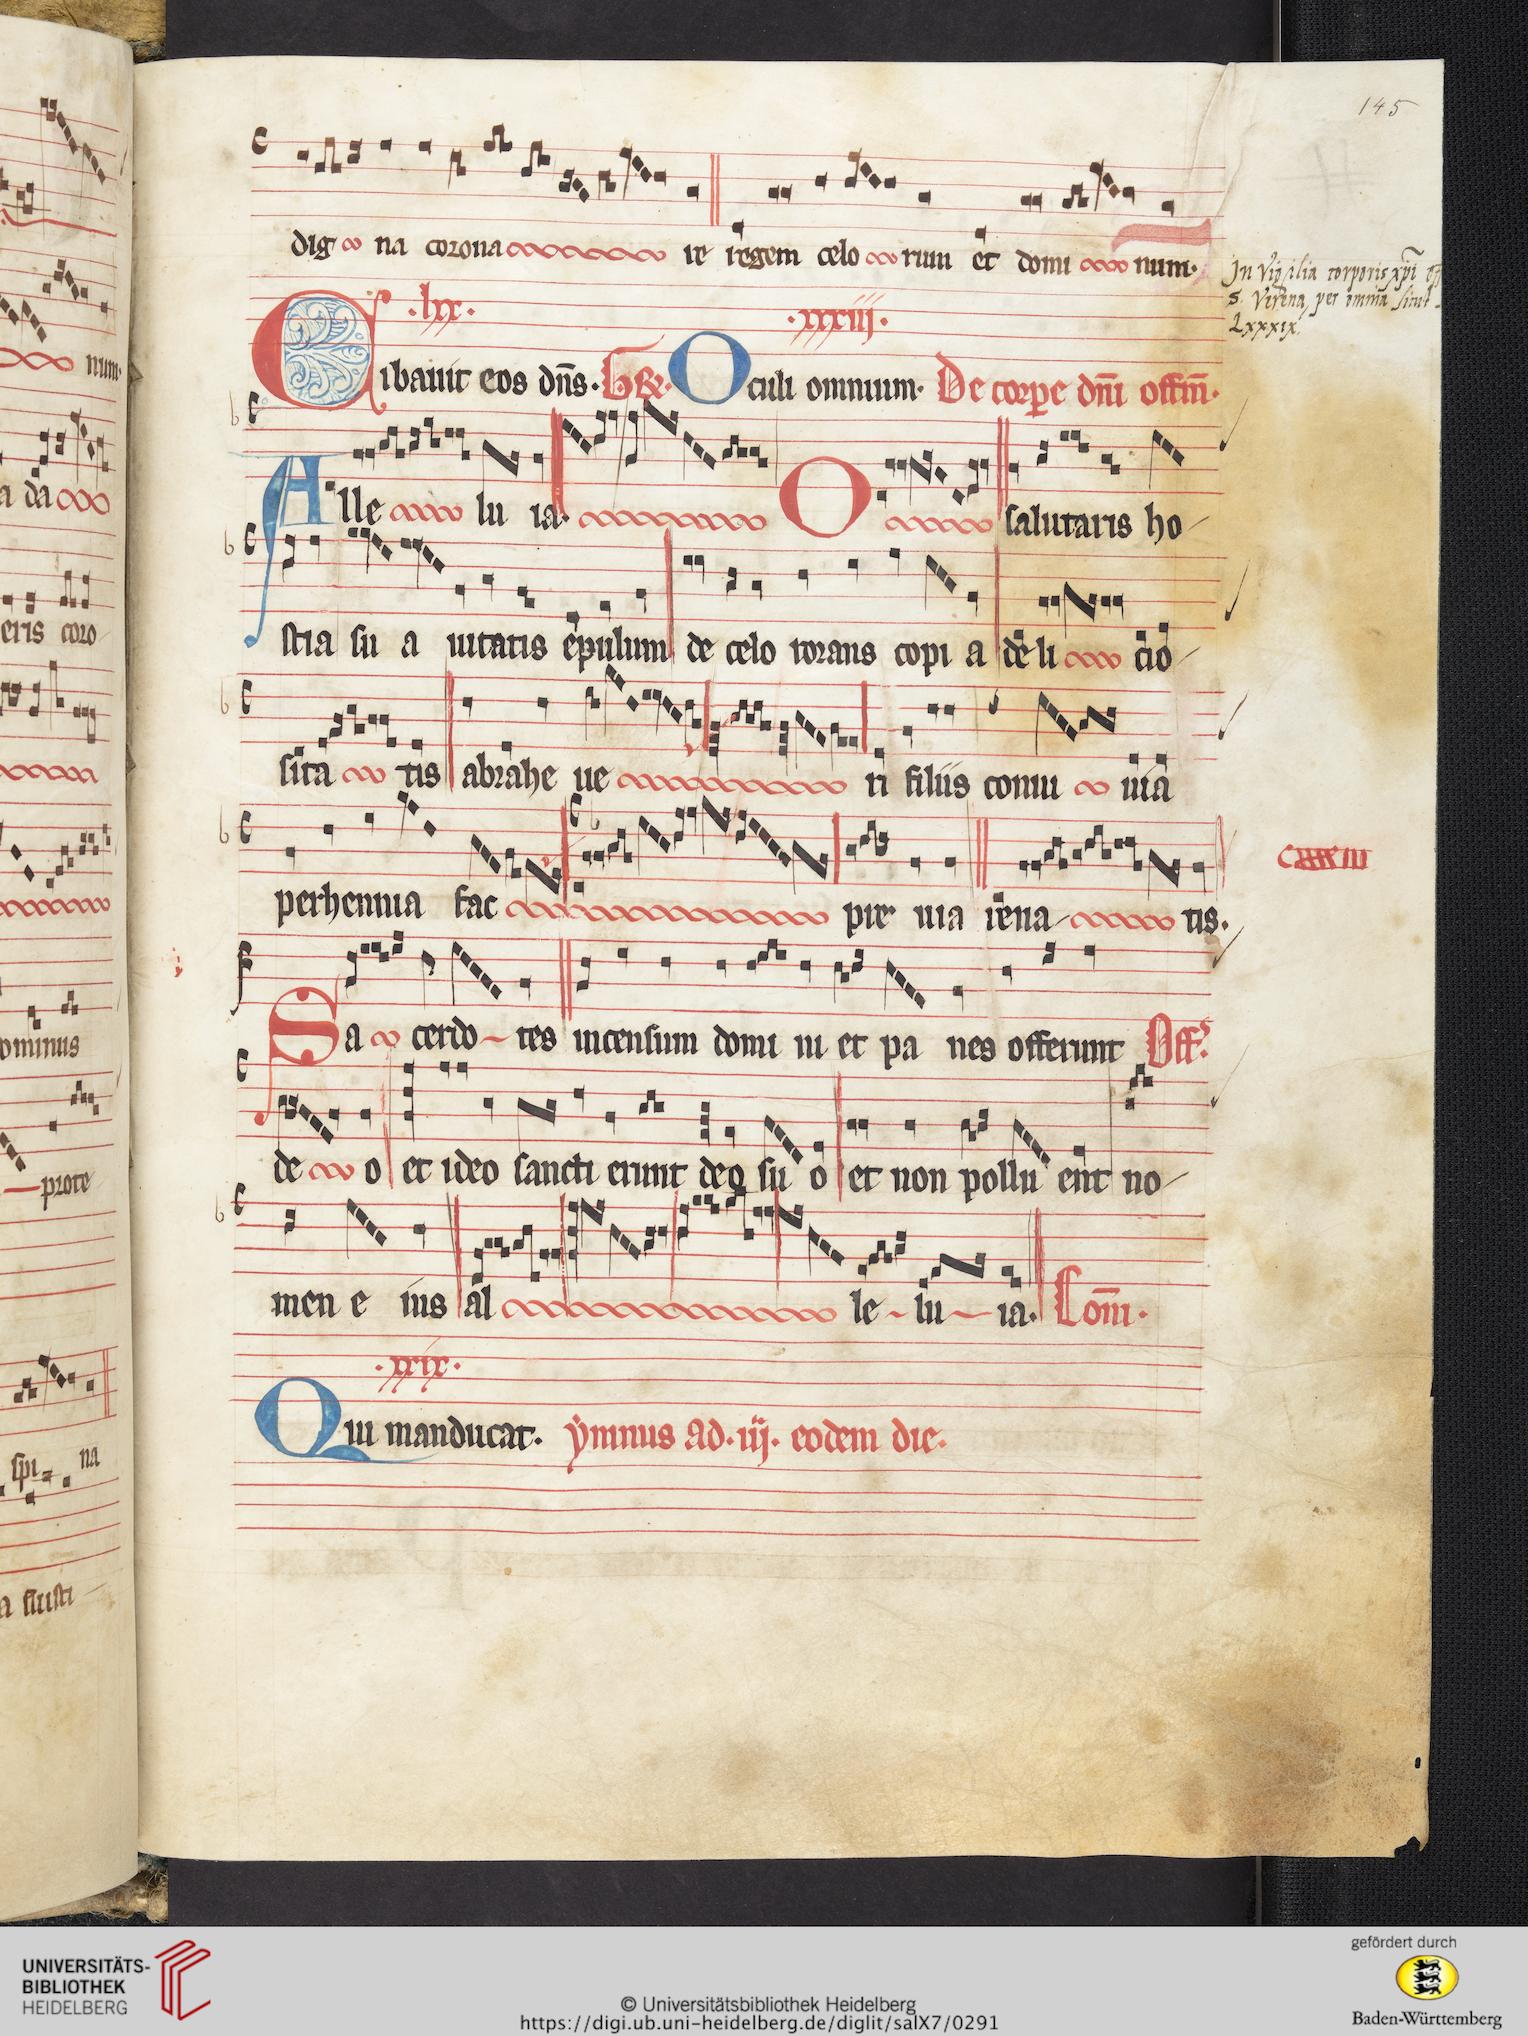 145
dig na corona re regem celo rum et domi num.
In Vigilia corporis xpi et
S. Verena, per omnia sicut
Lxxxix.
.lxx. .xxxiij.
Cibauit eos dns. Gr. Oculi omnium. De corpe dni offm.
Alle lu ia. O salutaris ho
stia su a uitatis epulum de celo rorans copi a de li cio
sita tis abrahe ue ri filiis conui uia
perhennia fac pie uia iena tis.
Sa cerdo tes incensum domi ni et pa nes offerunt Off.
de o et ideo sancti erunt deo su o et non pollu ent no
men e ius al le lu ia. Com.
.xxix.
Qui manducat. ymnus ad .iij. eodem die.
num.
a da
eris coro
tominus
prote
spi na
UNIVERSITÄTS-
BIBLIOTHEK
HEIDELBERG
© Universitätsbibliothek Heidelberg
https://digi.ub.uni-heidelberg.de/diglit/salX7/0291
gefördert durch
Baden-Württemberg